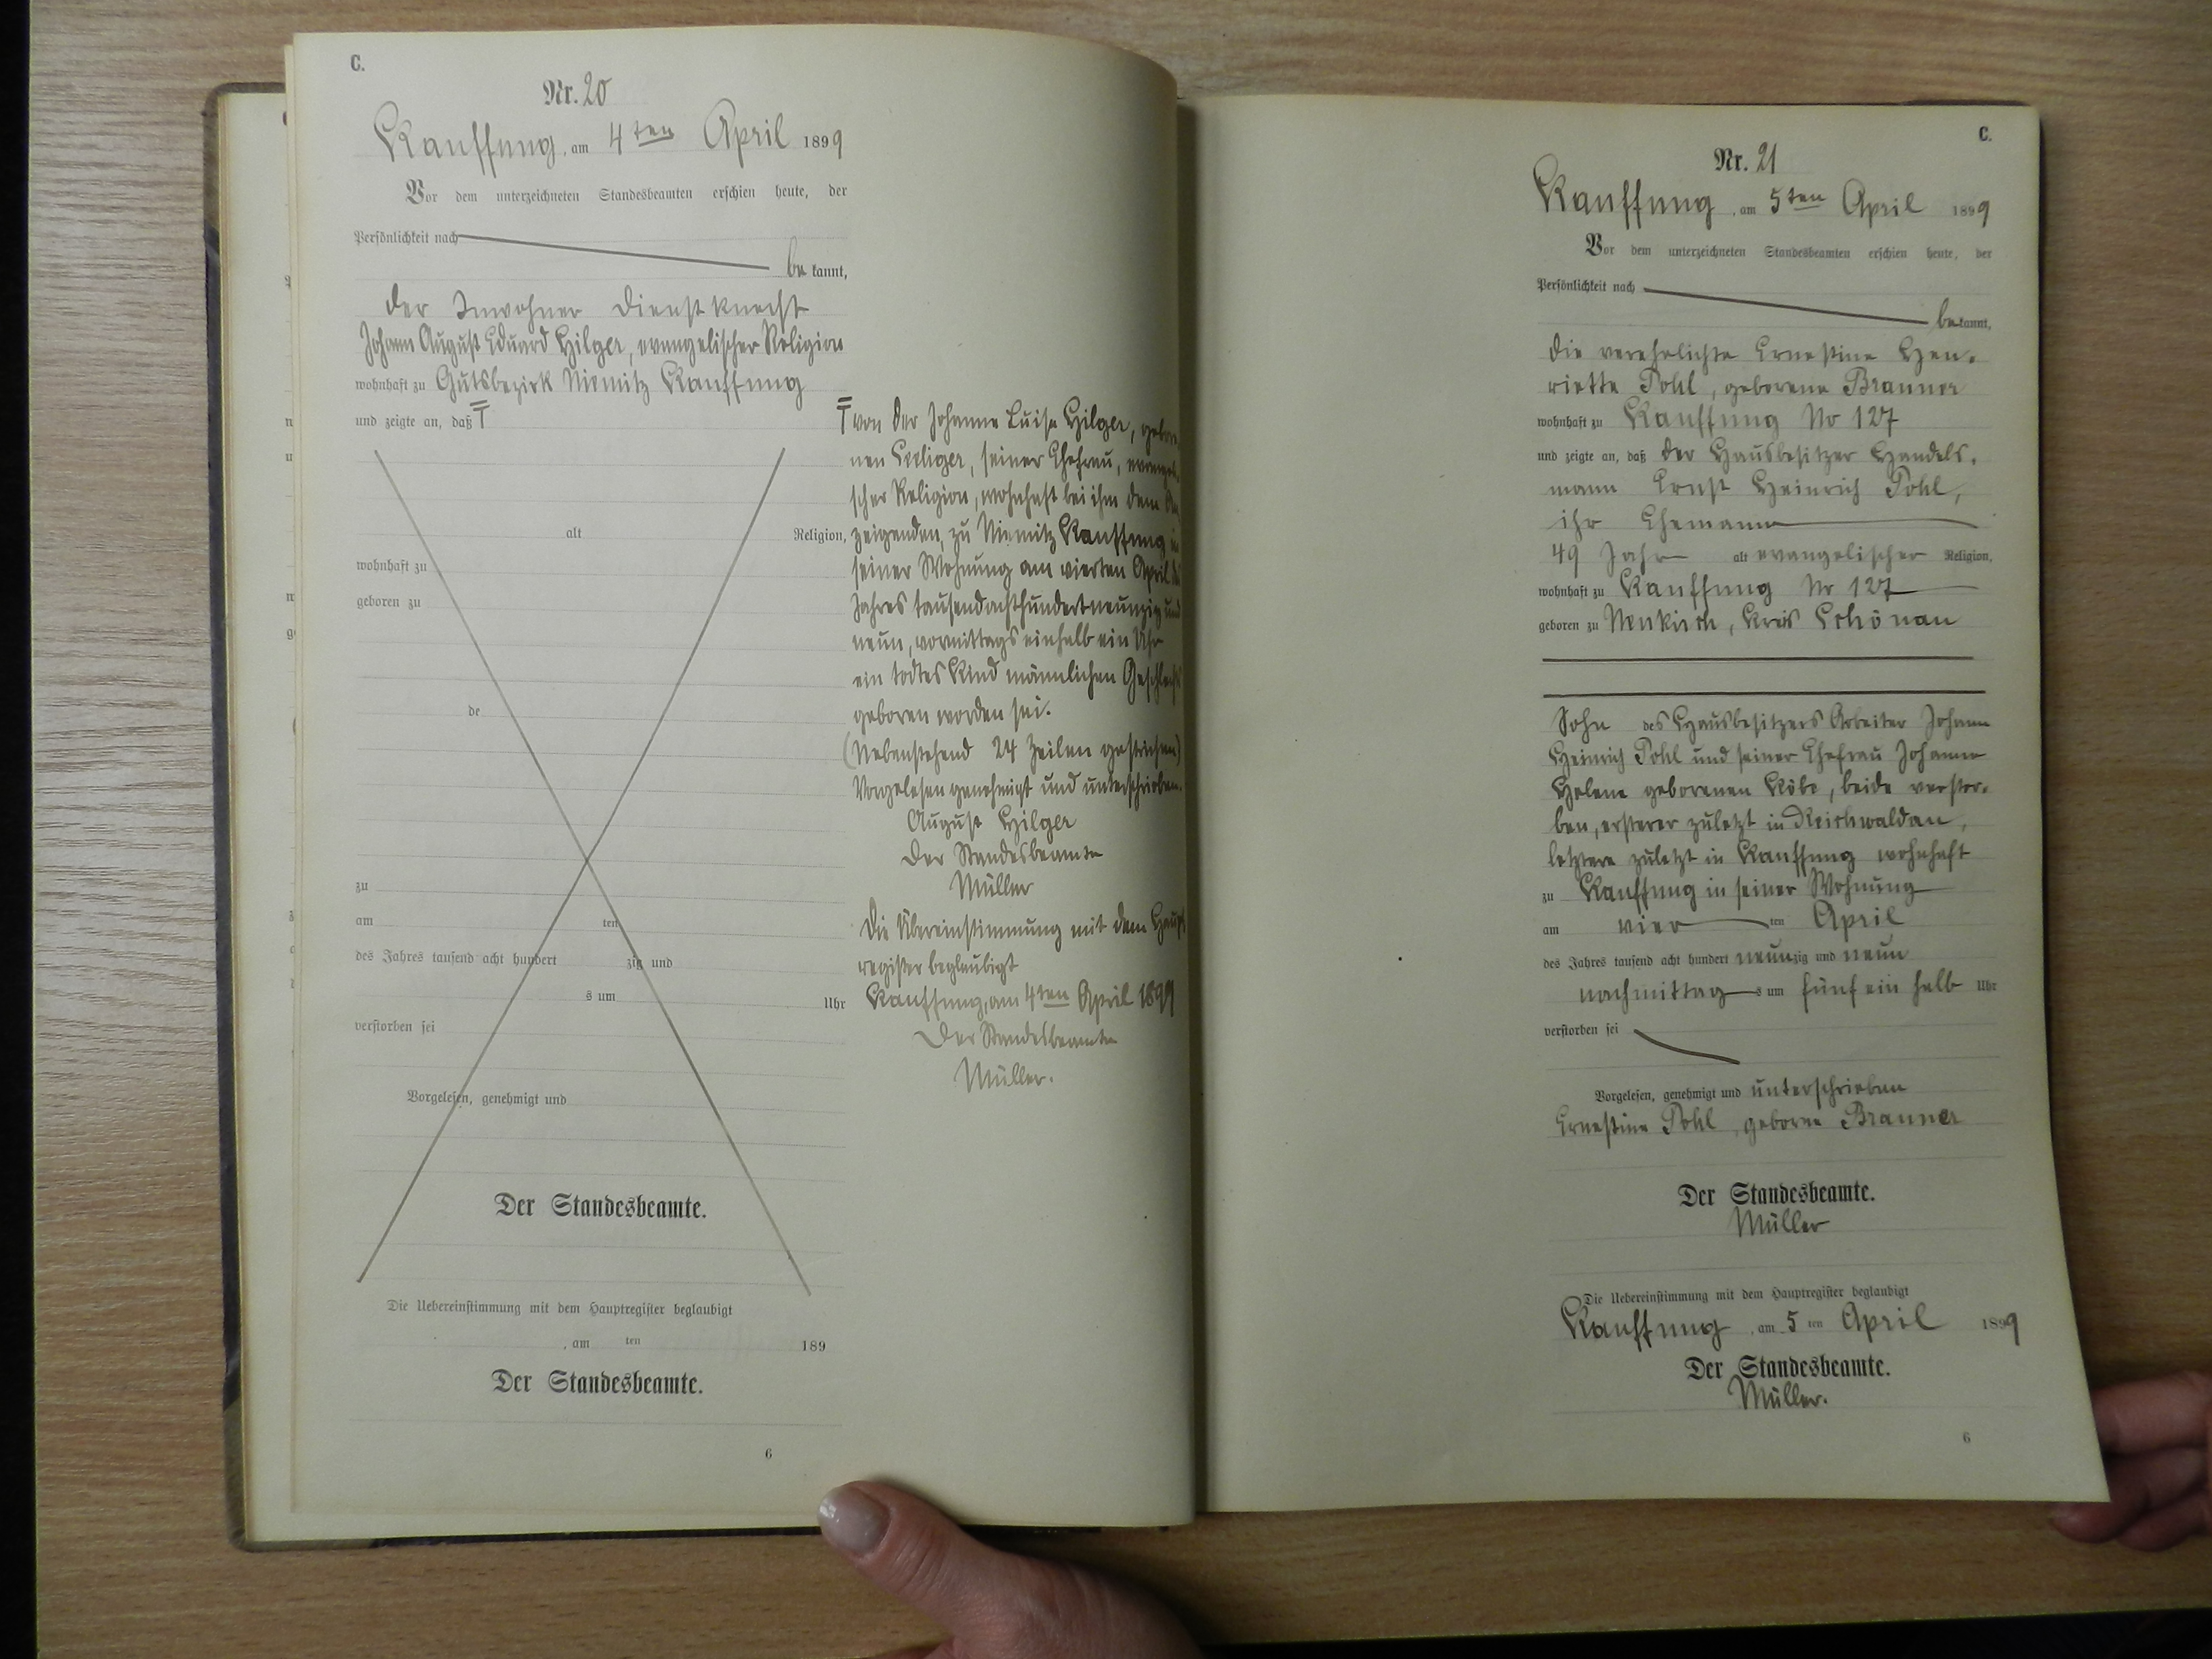 C.
Nr. 20
Kauffung, am 4ten April 1899
Vor dem unterzeichneten Standesbeamten erschien heute, der
Persönlichkeit nach
be kannt,
der Inwohner Dienstknecht
Johann August Eduard Hilger, evangelischer Religion
wohnhaft zu Gutsbezirk Niemitz Kauffung
und zeigte an, daß
alt Religion,
wohnhaft zu
geboren zu
de
zu
am ten
des Jahres tausend acht hundert zig und
s um Uhr
verstorben sei
Vorgelesen, genehmigt und
Der Standesbeamte.
Die Uebereinstimmung mit dem Hauptregister beglaubigt
, am ten 189
Der Standesbeamte.
6
von der Johanne Luise Hilger, gebor
nen Seeliger, seiner Ehefrau, evangel
scher Religion, wohnhaft bei ihm dem An
zeigenden, zu Niemitz Kauffung in
seiner Wohnung am vierten April
Jahres tausendachthundertneunzig und
neun, vormittags einhalb ein Uhr
ein todtes Kind männlichen Geschlechts
geboren worden sei.
(Nebenstehend 24 Zeilen gestrichen)
Vorgelesen genehmigt und unterschrieben.
August Hilger
Der Standesbeamte
Müller
Die Übereinstimmung mit dem Haupt
register beglaubigt
Kauffung, am 4ten April 1899
Der Standesbeamte
Müller.
C.
Nr. 21
Kauffung, am 5ten April 1899
Vor dem unterzeichneten Standesbeamten erschien heute, der
Persönlichkeit nach
be kannt,
die verehelichte Ernestine Hen-
riette Pohl, geborene Branner
wohnhaft zu Kauffung No 127
und zeigte an, daß der Hausbesitzer Handels-
mann Ernst Heinrich Pohl,
ihr Ehemann
49 Jahr alt evangelischer Religion,
wohnhaft zu Kauffung Nr 127
geboren zu Neukirch, Kreis Schönau
Sohn des Hausbesitzers Arbeiter Johann
Heinrich Pohl und seiner Ehefrau Johanne
Helene geborenen Köbe, beide verstor-
ben, ersterer zuletzt in Reichwaldau,
letztere zuletzt in Kauffung wohnhaft
zu Kauffung in seiner Wohnung
am vier ten April
des Jahres tausend acht hundert neunzig und neun
nachmittag s um fünf ein halb Uhr
verstorben sei
Vorgelesen, genehmigt und unterschrieben
Ernestine Pohl geborne Branner
Der Standesbeamte.
Müller
Die Uebereinstimmung mit dem Hauptregister beglaubigt
Kauffung, am 5 ten April 1899
Der Standesbeamte.
Müller.
6